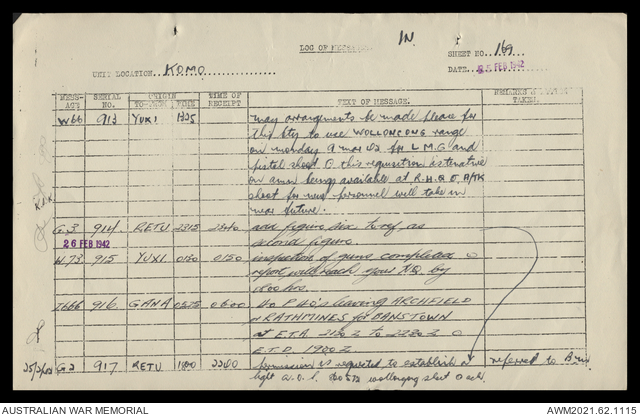 LOG OF MESSAGES. IN.
SHEET NO. 169
UNIT LOCATION. KOMO
DATE. 25 FEB 1942
MESS-AGE SERIAL NO. ORIGIN TO-FROM TIME TIME OF RECEIPT TEXT OF MESSAGE. REMARKS TAKEN.
W66 913 YUKI 1325 may arrangements be made please for
this bty to use WOLLONGONG range
on monday 9 mar 42 for L.M.G and
pistol shoot O this requisition
on ammn being available at R.H.Q O A/TK
shoot for new personnel will take in
near future.
G.3 914 RETU 2315 2340 add figure six to ref as
26 FEB 1942 second figure.
W.73 915 YUXI 0130 0150 inspection of guns completed O
report will reach your HQ by
1800 hrs.
916 GANA 0600 leaving ARCHFIELD
RATHMINES for BANSTOWN
at E.T.A. 2130 Z to 2230 Z O
E.T.D. 1900 Z
25/2/42 G2 917 RETU 1800 2200 permission is requested to establish referred to
light wollongong
AUSTRALIAN WAR MEMORIAL
AWM2021.62.1115